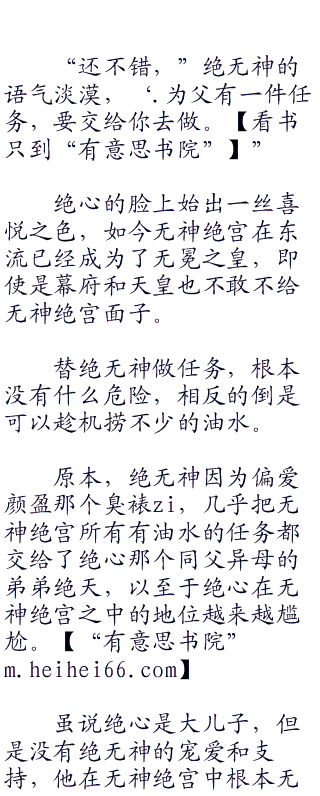 “还不错，”绝无神的
语气淡漠，‘.为父有一件任
务，要交给你去做。【看书
只到“有意思书院”】”
绝心的脸上始出一丝喜
悦之色，如今无神绝宫在东
流已经成为了无冕之皇，即
使是幕府和天皇也不敢不给
无神绝宫面子。
替绝无神做任务，根本
没有什么危险，相反的倒是
可以趁机捞不少的油水。
原本，绝无神因为偏爱
颜盈那个臭裱zi，几乎把无
神绝宫所有有油水的任务都
交给了绝心那个同父异母的
弟弟绝天，以至于绝心在无
神绝宫之中的地位越来越尴
尬。【“有意思书院”
m.heihei66.com】
虽说绝心是大儿子，但
是没有绝无神的宠爱和支
持，他在无神绝宫中根本无